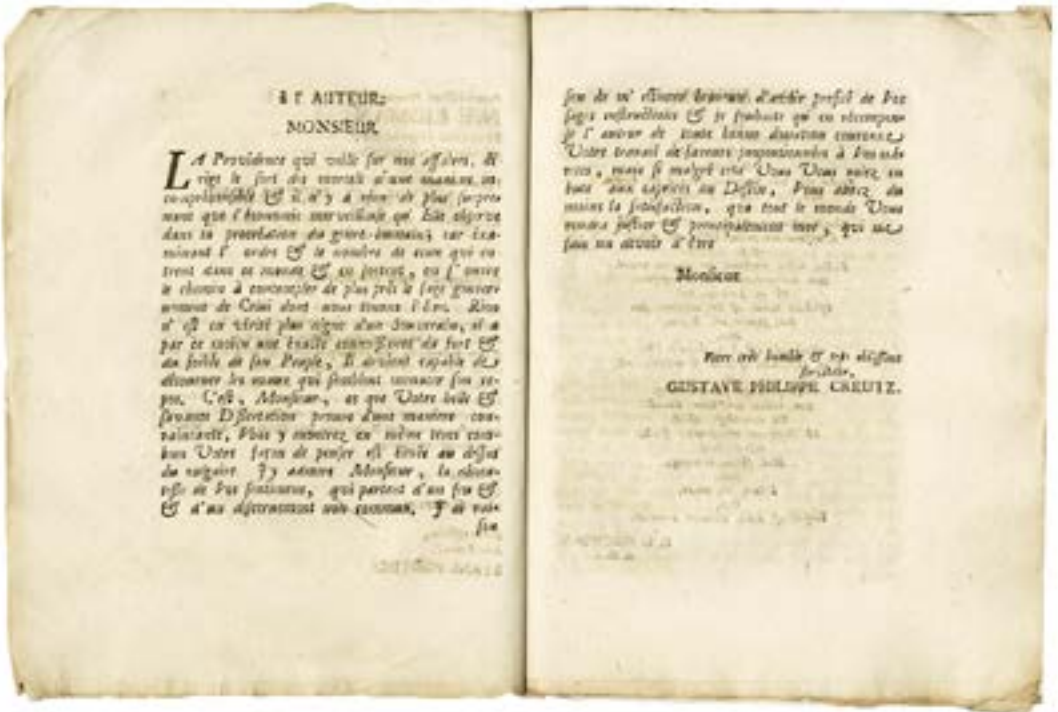 à l' AUTEUR:
MONSIEUR
LA Providence qui veille sur nos affaires, di-
rige le sort des mortels d'une maniere in-
comprehensible & il n'y a rien de plus surpre-
nant que l'économie merveilleuse qu' Elle observe
dans la procréation du genre-humain; car éxa-
minant l' ordre & le nombre de ceux qui en-
trent dans ce monde & en sortent, on s' ouvre
le chemin à contempler de plus près le sage gouver-
nement de Celui dont nous tenons l'être. Rien
n' est en vérité plus digne d'un Souverain, si
par ce moien une éxacte connoissance du fort &
du foible de son Peuple, Il devient capable de
détourner les maux qui semblent menacer son re-
pos. C'est, Monsieur, ce que Votre belle &
savante Dissertation prouve d'une maniere con-
vaincante, Vous y montrez en même tems com-
bien Votre façon de penser est élevée au dessus
du vulgaire. J'y admire Monsieur, la
de Vos sentimens, qui partent d'un feu &
& d'un discernement non commun. J' ai rai-
son
son de m' estimer d'avoir profité de Vos
sages instructions & je souhaite qu' en récompen-
se l' auteur de toute bonne donation couronne
Votre travail de faveurs proportionnées à Vos mé-
rites, mais si malgré cela Vous Vous voiez en
bute aux caprices du Destin, Vous aurez du
moins la satisfaction, que tout le monde Vous
rendra justice & principalement moi, qui me
fais un devoir d'être
Monsieur
Votre très humble & très obéissant
serviteur,
GUSTAVE PHILIPPE CREUTZ.